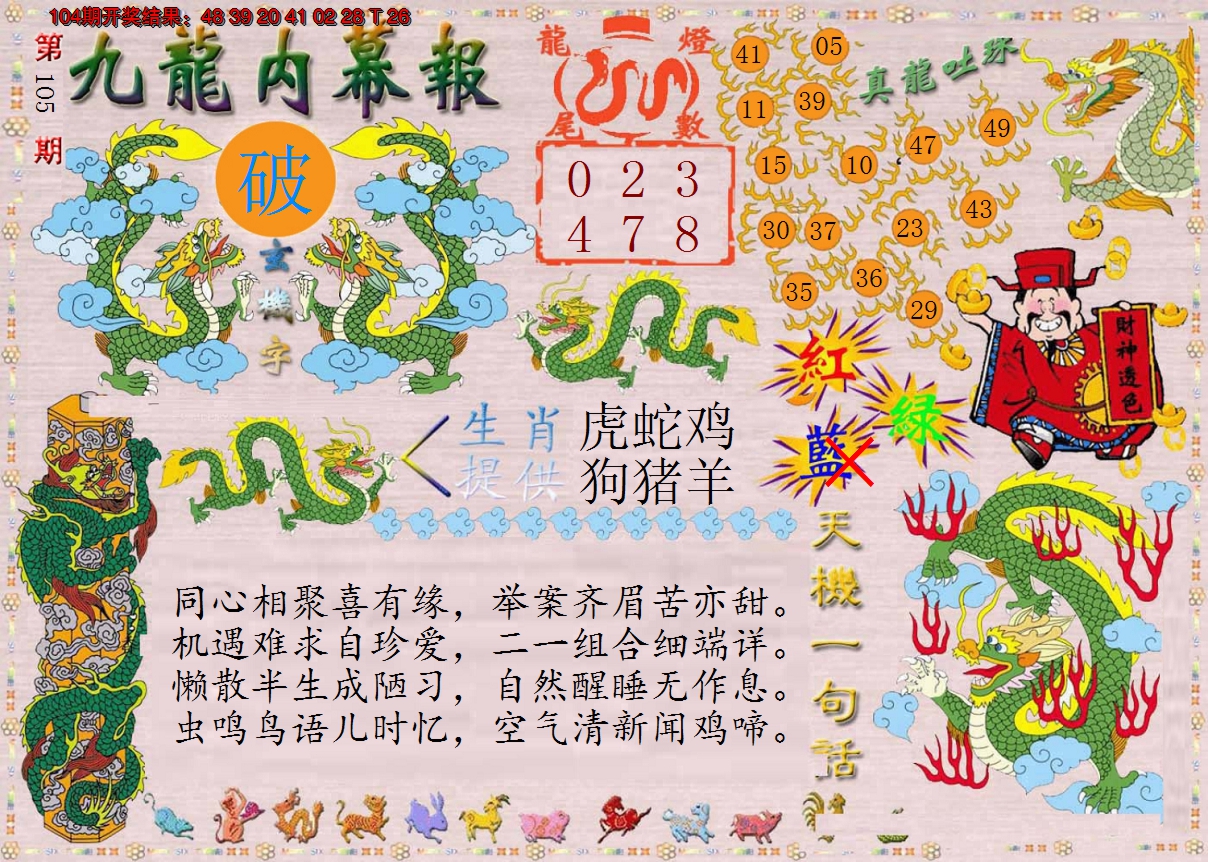 104期开奖结果：48 39 20 41 02 28 T 26
第105期
九龍内幕報
破
玄機字
龍燈
尾數
0 2 3
4 7 8
真龍吐珠
41 05
11 39
47 49
15 10
43
30 37 23
36
35
29
財神透色
紅
綠
藍
生肖 虎蛇鸡
提供 狗猪羊
天機一句话
同心相聚喜有缘，举案齐眉苦亦甜。
机遇难求自珍爱，二一组合细端详。
懒散半生成陋习，自然醒睡无作息。
虫鸣鸟语儿时忆，空气清新闻鸡啼。